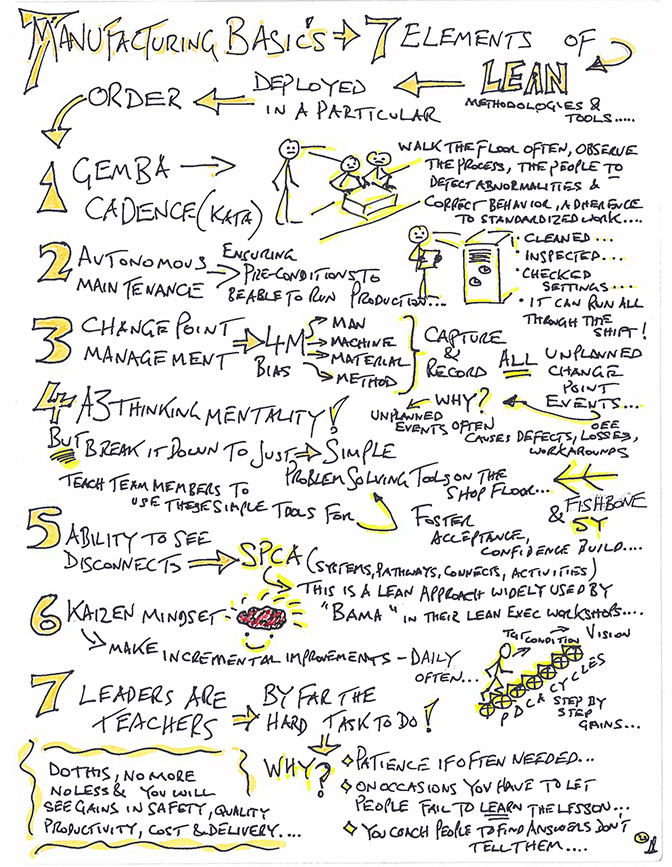 MANUFACTURING BASIC'S ⇒ 7 ELEMENTS OF
LEAN
METHODOLOGIES &
TOOLS.....
DEPLOYED
IN A PARTICULAR
ORDER
1 GEMBA →
CADENCE (KATA)
WALK THE FLOOR OFTEN, OBSERVE
THE PROCESS, THE PEOPLE TO
DEFECT ABNORMALITIES &
CORRECT BEHAVIOR, ADHERENCE
TO STANDARDIZED WORK....
2 AUTONOMOUS
MAINTENANCE
ENSURING
PRE-CONDITIONS TO
BE ABLE TO RUN PRODUCTION...
• CLEANED...
• INSPECTED...
• CHECKED
SETTINGS....
• IT CAN RUN ALL
THROUGH THE
SHIFT!
3 CHANGE POINT
MANAGEMENT
⇒ 4M
BIAS
MAN
MACHINE
MATERIAL
METHOD
CAPTURE
&
RECORD
ALL UNPLANNED
CHANGE
POINT
EVENTS...
WHY?
UNPLANNED
EVENTS OFTEN
CAUSES DEFECTS, LOSSES,
OEE
WORKAROUNDS
4 A3 THINKING MENTALITY!
BUT BREAK IT DOWN TO JUST ⇒ SIMPLE
PROBLEM SOLVING TOOLS ON THE
SHOP FLOOR...
& FISHBONE
5Y
TEACH TEAM MEMBERS TO
USE THESE SIMPLE TOOLS FOR
FOSTER
ACCEPTANCE,
CONFIDENCE BUILD....
5 ABILITY TO SEE
DISCONNECTS ⇒ SPCA (SYSTEMS, PATHWAYS, CONNECTS, ACTIVITIES)
THIS IS A LEAN APPROACH WIDELY USED BY
"BAMA" IN THEIR LEAN EXEC WORKSHOPS....
6 KAIZEN MINDSET
MAKE INCREMENTAL IMPROVEMENTS - DAILY
OFTEN...
TGT CONDITION VISION
PDCA CYCLES
STEP BY
STEP
GAINS...
7 LEADERS ARE
TEACHERS ⇒
BY FAR THE
HARD TASK TO DO!
WHY?
◇ PATIENCE IF OFTEN NEEDED...
◇ ON OCCASIONS YOU HAVE TO LET
PEOPLE FAIL TO LEARN THE LESSON...
◇ YOU COACH PEOPLE TO FIND ANSWERS DON'T
TELL THEM....
DO THIS, NO MORE
NO LESS & YOU WILL
SEE GAINS IN SAFETY, QUALITY
PRODUCTIVITY, COST & DELIVERY....